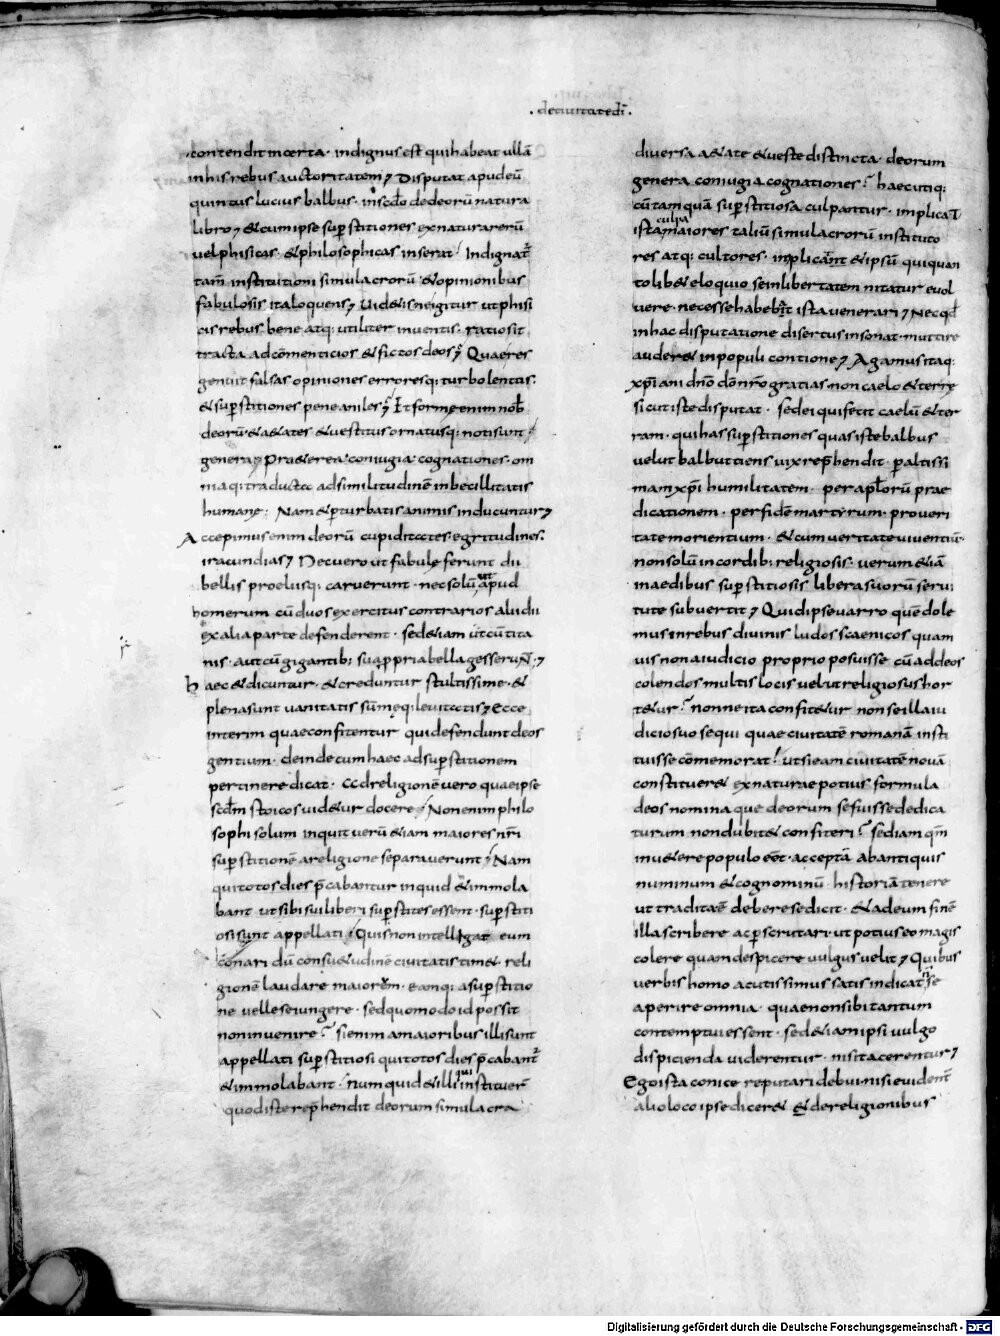 · deciuitatedī ·
contendit incerta · indignus est quihabeat ullā
inhisrebus auctoritatem; Disputat apudeū
quintus lucius balbus · insc̄do dedeorū natura
libro; & cumipse sup̄stitiones exnaturarerū
uelphisicas · & philosophicas inserat · Indignat᷑
tam̄ institutioni simulacrorū & opinionibus
fabulosis italoquens; Uid&isneigitur utphisi
cis rebus bene atq; utiliter inuentis · ratiosit
tracta adcōmenticios & fictos deos; Quaeres
genuit falsas opiniones erroresq; turbolentus ·
& sup̄stitiones pene aniles; Et forme enim nob̄
deorū & a&ates & uestitus ornatusq; notisunt
genera; Pra&erea coniugia cognationes · om
niaq; traducta adsimilitudinē inbecillitatis
humanę; Nam & p̄turbatis animis inducuntur;
Accepimus enim deorū cupiditates egritudines ·
iracundias; Necuero ut fabule ferunt dii
bellis proeliisq; caruerunt · necsolū ut apud
homerum cū duos exercitus contrarios alii dii
exalia parte defenderent · sed&iam ut cū tita
nis · aut cū gigantib; sua p̄pria bella gesserunt;
Haec & dicuntur · & creduntur stultissime · &
plenasunt uanitatis sūmęq; leuitatis; Ecce
interim quaeconfitentur quidefendunt deos
gentium · deinde cum haec adsup̄stitionem
pertinere dicat · Adreligionē uero quaeipse
scd̄m stoicos uid&ur docere; Nonenim philo
sophi solum inquit uerū &iam maiores nr̄i
sup̄stitionē areligione separauerunt; Nam
quitotos dies p̄cabantur inquid & immola
bant · utsibi sui liberi sup̄stites essent · sup̄stiti
osi sunt appellati; Quis non intellegat eum
conari dū consu&udinē ciuitatis tim& · reli
gionē laudare maiorem · eamq; asup̄stitio
ne uelle seiungere · sed quomodo id possit
non inuenire? si enim amaioribus illi sunt
appellati sup̄stitiosi qui totos dies p̄cabant᷑
& immolabant · num quid & illi qui instituer̄
quod iste rep̄hendit deorum simulacra
diuersa a&ate & ueste distincta · deorum
genera coniugia cognationes? haec utiq;
cū tamquā sup̄stitiosa culpantur · implicat
ista culpa maiores taliū simulacrorū instituto
res atq; cultores · implicant & ipsū qui quan
tolib& eloquio se in libertatem nitatur euol
uere · necesse habebat ista uenerari; Nec qđ
in hac disputatione disertus insonat · muttire
auder& in populi contione; Agamus itaq;
xp̄iani dn̄o dō nr̄o gratias · non caelo & terrę
sicut iste disputat · sed ei qui fecit caelū & ter
ram · qui has sup̄stitiones quas iste balbus
uelut balbuttiens uix rep̄hendit · p̄ altissi
mam xp̄i humilitatem · per apl̄orū prae
dicationem · per fidē martyrum · pro ueri
tate morientium · & cum ueritate uiuentiū ·
non solū in cordib; religiosis · uerum &iā
in aedibus sup̄stitiosis libera suorū serui
tute subuertit; Quid ipse uarro quē dole
mus in rebus diuinis ludos scaenicos quam
uis non a iudicio proprio posuisse cū ad deos
colendos multis locis uelut religiosus hor
t&ur? nonne ita confit&ur non se illa iu
dicio suo sequi quae ciuitatē romanā insti
tuisse cōmemorat! ut si eam ciuitatē nouā
constituer& ex naturae potius formula
deos nomina que deorum se fuisse dedica
turum non dubit& confiteri? sed iam qm̄
in u&ere populo e&́ · acceptā ab antiquis
numinum & cognominū · historiā tenere
ut tradita ē debere se dicit · & ad eum finē
illa scribere ac p̄scrutari · ut potius eo magis
colere quam despicere uulgus uelit; Quibus
uerbis homo acutissimus satis indicat n̄ se
aperire omnia · quae non sibi tantum
contemptui essent · sed &iam ipsi uulgo
dispicienda uiderentur · nisi tacerentur;
Ego ista conicere putari debui nisi euident̄
alio loco ipse dicer& de religionibus